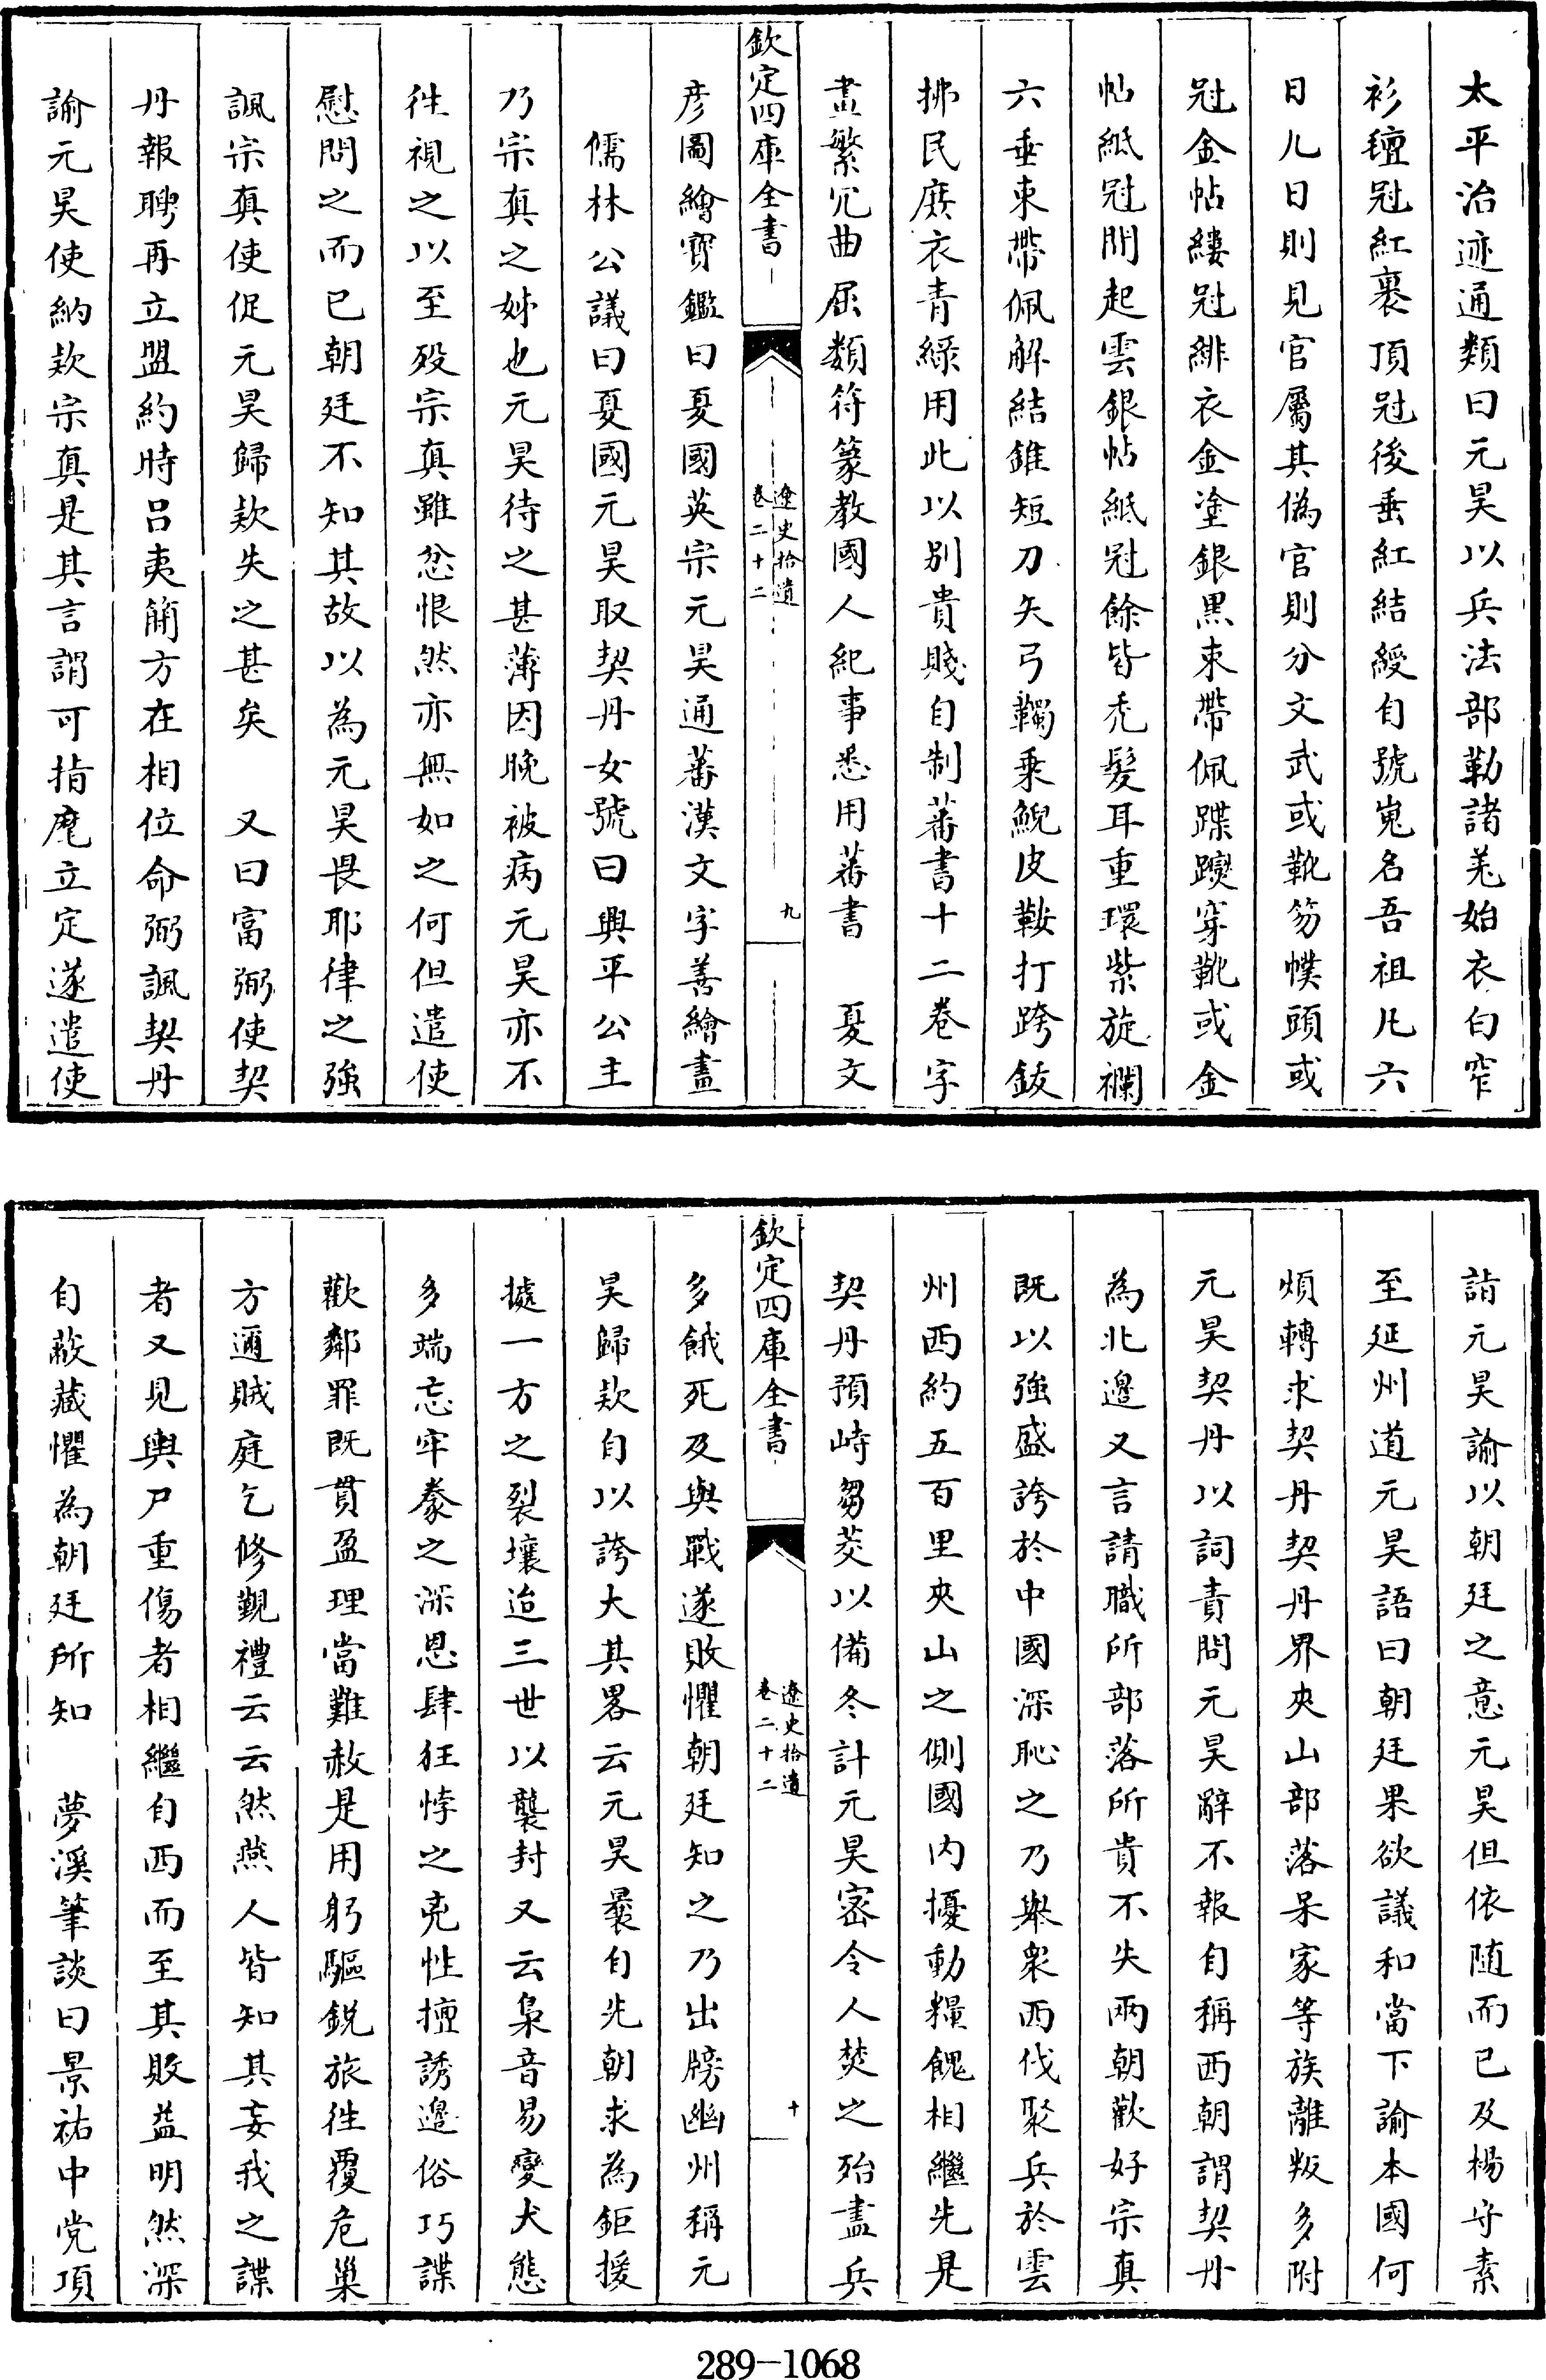 太平治迹通類曰元昊以兵法部勒諸羌始衣白窄
衫氊冠紅裏頂冠後垂紅結綬自號嵬名吾祖凡六
日九日則見官屬其偽官則分文武或靴笏幞頭或
冠金帖縷冠緋衣金塗銀黑束帶佩蹀躞穿靴或金
帖紙冠間起雲銀帖紙冠餘皆禿髮耳重環紫旋襴
六垂束帶佩解結錐短刀矢弓韣乘鯢皮鞍打跨鈸
拂民庶衣青綠用此以别貴賤自制蕃書十二卷字
畫繁冗曲屈類符篆教國人紀事悉用蕃書　夏文
欽定四庫全書
遼史拾遺
卷二十二
九
彦圖繪寶鑑曰夏國英宗元昊通蕃漢文字善繪畫
儒林公議曰夏國元昊取契丹女號曰興平公主
乃宗真之姊也元昊待之甚薄因晚被病元昊亦不
徃視之以至殁宗真雖忿恨然亦無如之何但遣使
慰問之而已朝廷不知其故以為元昊畏耶律之強
諷宗真使促元昊歸欵失之甚矣　又曰富弼使契
丹報聘再立盟約時吕夷簡方在相位命弼諷契丹
諭元昊使納欵宗真是其言謂可指麾立定遂遣使
詣元昊諭以朝廷之意元昊但依随而已及楊守素
至延州道元昊語曰朝廷果欲議和當下諭本國何
煩轉求契丹契丹界夾山部落呆家等族離叛多附
元昊契丹以詞責問元昊辭不報自稱西朝謂契丹
為北邊又言請職所部落所貴不失兩朝歡好宗真
既以強盛誇於中國深恥之乃舉衆西伐聚兵於雲
州西約五百里夾山之側國内擾動糧餽相繼先是
契丹預峙芻茭以備冬計元昊密令人焚之殆盡兵
欽定四庫全書
遼史拾遺
卷二十二
十
多餓死及與戰遂敗懼朝廷知之乃出牓幽州稱元
昊歸欵自以誇大其畧云元昊曩自先朝求為鉅援
據一方之裂壤迨三世以襲封又云梟音易變犬態
多端忘牢豢之深恩肆狂悖之兇性擅誘邊俗巧諜
歡鄰罪既貫盈理當難赦是用躬驅銳旅徃覆危巢
方邇賊庭乞修覲禮云云然燕人皆知其妄我之諜
者又見輿尸重傷者相繼自西而至其敗益明然深
自蔽藏懼為朝廷所知　夢溪筆談曰景祐中党項
289-1068